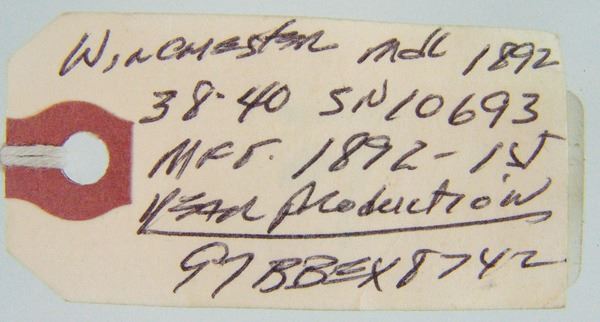 WINCHESTER Mdl 1892
38-40 SN 10693
MFT. 1892-1st
YEAR PRODUCTION
97BBEX8742